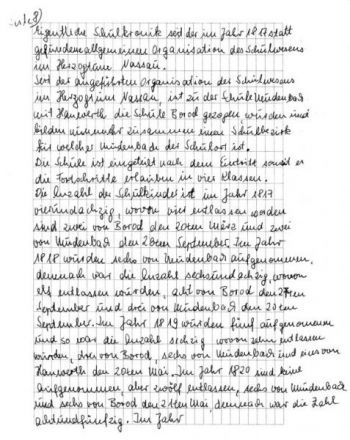 Eigentliche Schulkronik seid der im Jahr 1817 statt
gefundenen allgemeinen Organisation des Schulwesens
im Herzogtum Nassau.
Seit der angeführten Organisation des Schulwesens
im Herzogtum Nassau, ist zu der Schule Mündenbach
mit Hanwerth die Schule Borod gezogen worden und
bilden nunmehr zusammen einen Schulbezirk
für welcher Mündenbach der Schulort ist.
Die Schule ist eingeteilt nach dem Eintritt soweit es
die Fortschritte erlauben in vier Klassen.
Die Anzahl der Schulkinder ist im Jahr 1817
vierundachzig, wovon vier entlassen worden
sind zwei von Borod den 20ten März und zwei
von Mündenbach den 20ten September. Im Jahr
1818 wurden sechs von Mündenbach aufgenommen,
demnach war die Anzahl sechsundachzig, wovon
elf entlassen wurden, acht von Borod den 27ten
September und drei von Mündenbach den 20ten
September. Im Jahr 1819 wurden fünf aufgenommen
und so war die Anzahl achzig wovon zehn entlassen
wurden, drei von Borod, sechs von Mündenbach und eines von
Hanwerth den 20ten Mai. Im Jahr 1820 sind keine
aufgenommen, aber zwölf entlassen, sechs von Mündenbach
und sechs von Borod den 21ten Mai, demnach war die Zahl
achtundfünfzig. Im Jahr